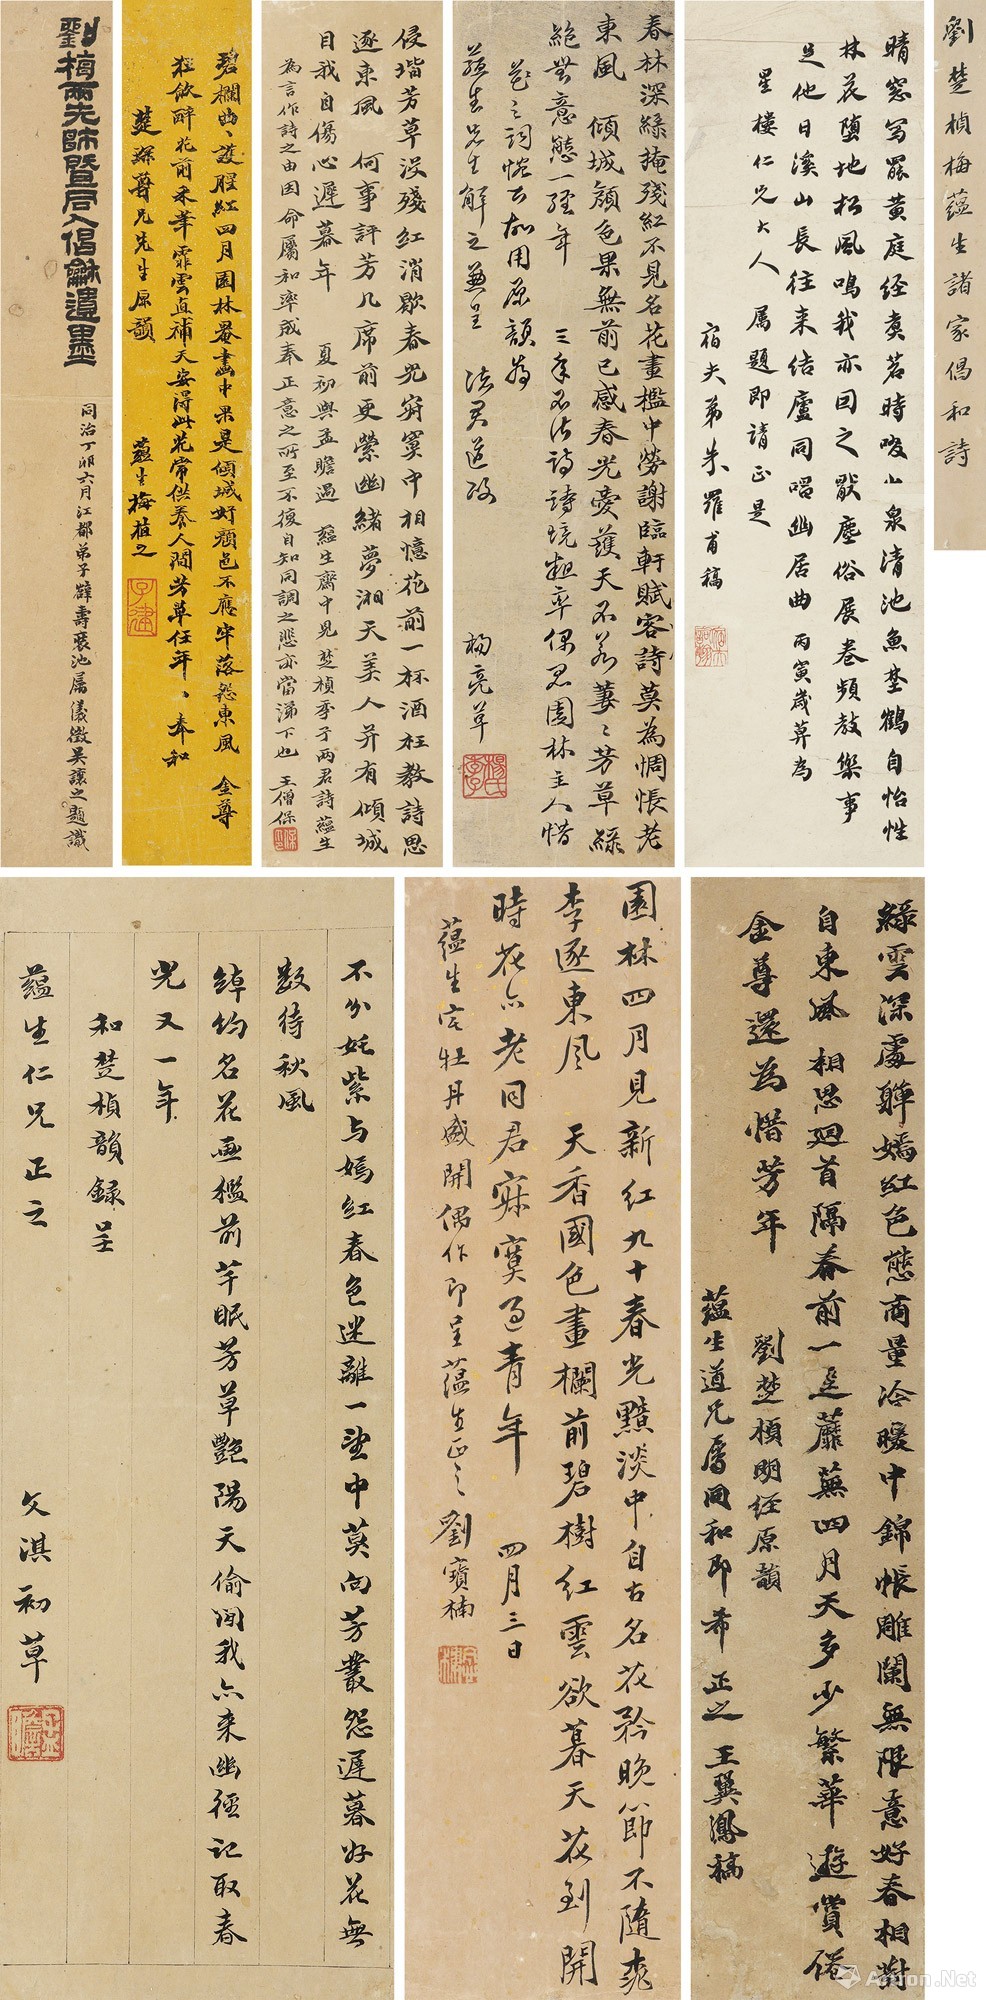 劉楚楨梅蘊生諸家倡和詩
晴窓寫罷黃庭経煑茗時啜山泉清池魚埜鶴自怡性
林花墮地松風鳴我亦回之厭塵俗展卷頻教樂事
足他日溪山長往来結廬同唱幽居曲丙寅歲莫為
星樓仁兄大人屬題即請正是
宿夫弟朱羅甫稿
春林深綠掩殘紅不見名花畫檻中勞謝臨軒賦客詩莫為惆悵老
東風 傾城顏色果無前已感春光憂護天不若萋〻芳草綠
絕世意態一經年 三年不作詩詩境粗率偶思園林主人惜
花之詞惓不忘用原韻為
蘊生先生解之兼呈 法君道政
楊亮草
侵堦芳草沒殘紅消歇春光窈窕中相憶花前一杯酒枉教詩思
逐東風 何事評芳几席前更縈幽緒夢湘天美人并有傾城
目我自傷心遲暮年 夏初與孟瞻過 蘊生齋中見楚楨季子兩君詩蘊生
為言作詩之由因命屬和率成奉正意之所至不復自知同調之悲亦當涕下也 王僧保
碧欄曲〻護腥紅四月園林罨畫中果是傾城好顏色不應牢落怨東風 金尊
狂飲醉花前采筆霏雲直補天安得此花常供養人間芳草任年〻奉和
楚楨尊兄先生原韻 蘊生梅植之
劉楨兩先師暨同人倡龢遺墨
同治丁卯六月江都弟子薛壽裒池屬儀徵吳讓之題識
綠雲深處嚲嫣紅色態商量冷暖中錦帳雕闌無限意好春相對
自東風 相思迴首隔春前一逕蘼蕪四月天多少繁華遊賞倦
金尊還為惜芳年
劉楚楨明経原韻
蘊生道兄屬同和即希 正之 王翼鳳稿
園林四月見新紅九十春光黯淡中自古名花矜晚節不隨桃
李逐東風 天香國色畫欄前碧樹紅雲欲暮天花到開
時花亦老同君寂寞過青年 四月三日
蘊生宅牡丹盛開偶作即呈蘊生正之 劉寶楠
不分妊紫与嫣紅春色迷離一望中莫向芳叢怨遲暮好花無
數待秋風
綽約名花画檻前芊眠芳草艷陽天偷閒我亦来幽徑記取春
光又一年
和楚楨韻錄呈
蘊生仁兄正之 文淇初草
Artron.Net